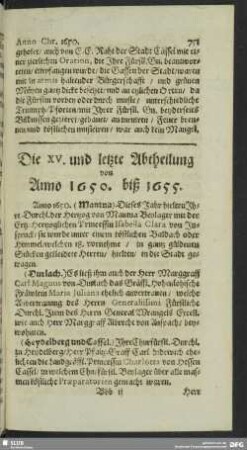 Anno Chr. 1650. 751
geholet/ auch von E.E. Raht der Stadt Cassel mit ei-
ner zierlichen Oration, die Ihre Fürstl. Gn. beantwor-
teten/ empfangen wurde/ die Gassen der Stadt/ waren
mit in armis haltender Bürgerschafft / und grünen
Mäyen gantz dicht besetzt: und an etzlichen Orten/ da
die Fürsten vorbey oder durch musten/ unterschiedliche
Triumph-Porten/ mit Ihrer Fürstl. Gn. beyderseits
Bildnissen gezieret/ gebauet: an wörten / Feuer
und köstlichen musiciren / war auch kein Mangel.
Die XV. und letzte Abtheilung
von
Anno 1650. biß 1655.
Anno 1650. (Mantua) Dieses Jahr hielten Ih-
re Durchl. der Hertzog von Mantua Beylager mit der
Ertz-Hertzoglichen Princessin Isabella Clara von In-
spruck/ sie wurde unter einem köstlichen Baldach oder
Himmel/ welchen 12. vornehme / in gantz güldenen
Stücken gekleidete Herren/ hielten/ in die Stadt ge-
tragen.
(Durlach.) Es ließ ihm auch der Herr Marggraff
Carl Magnus von Durlach das Gräffl. Hohenlohische
Fräwlein Maria Juliana ehelich antrauen: welche
Antrettung des Herrn Generalissimi Fürstliche
Durchl. Item des Herrn General Wrangels Excell.
wie auch Herr Marggraff Albrecht von Anspach/ bey-
wohnten.
(Heydelberg und Cassel.) Ihre Churfürstl. Durchl.
zu Heydelberg/ Herr Pfaltz-Graff Carl Ludewich ehe-
lichten die Landgräffl. Princessin Charlotta von Hessen
Cassel/ zu welchem Churfürstl. Beylager über alle mas-
sen köstliche Praeparatorien gemacht waren.
Bbb ij Herr
SLUB